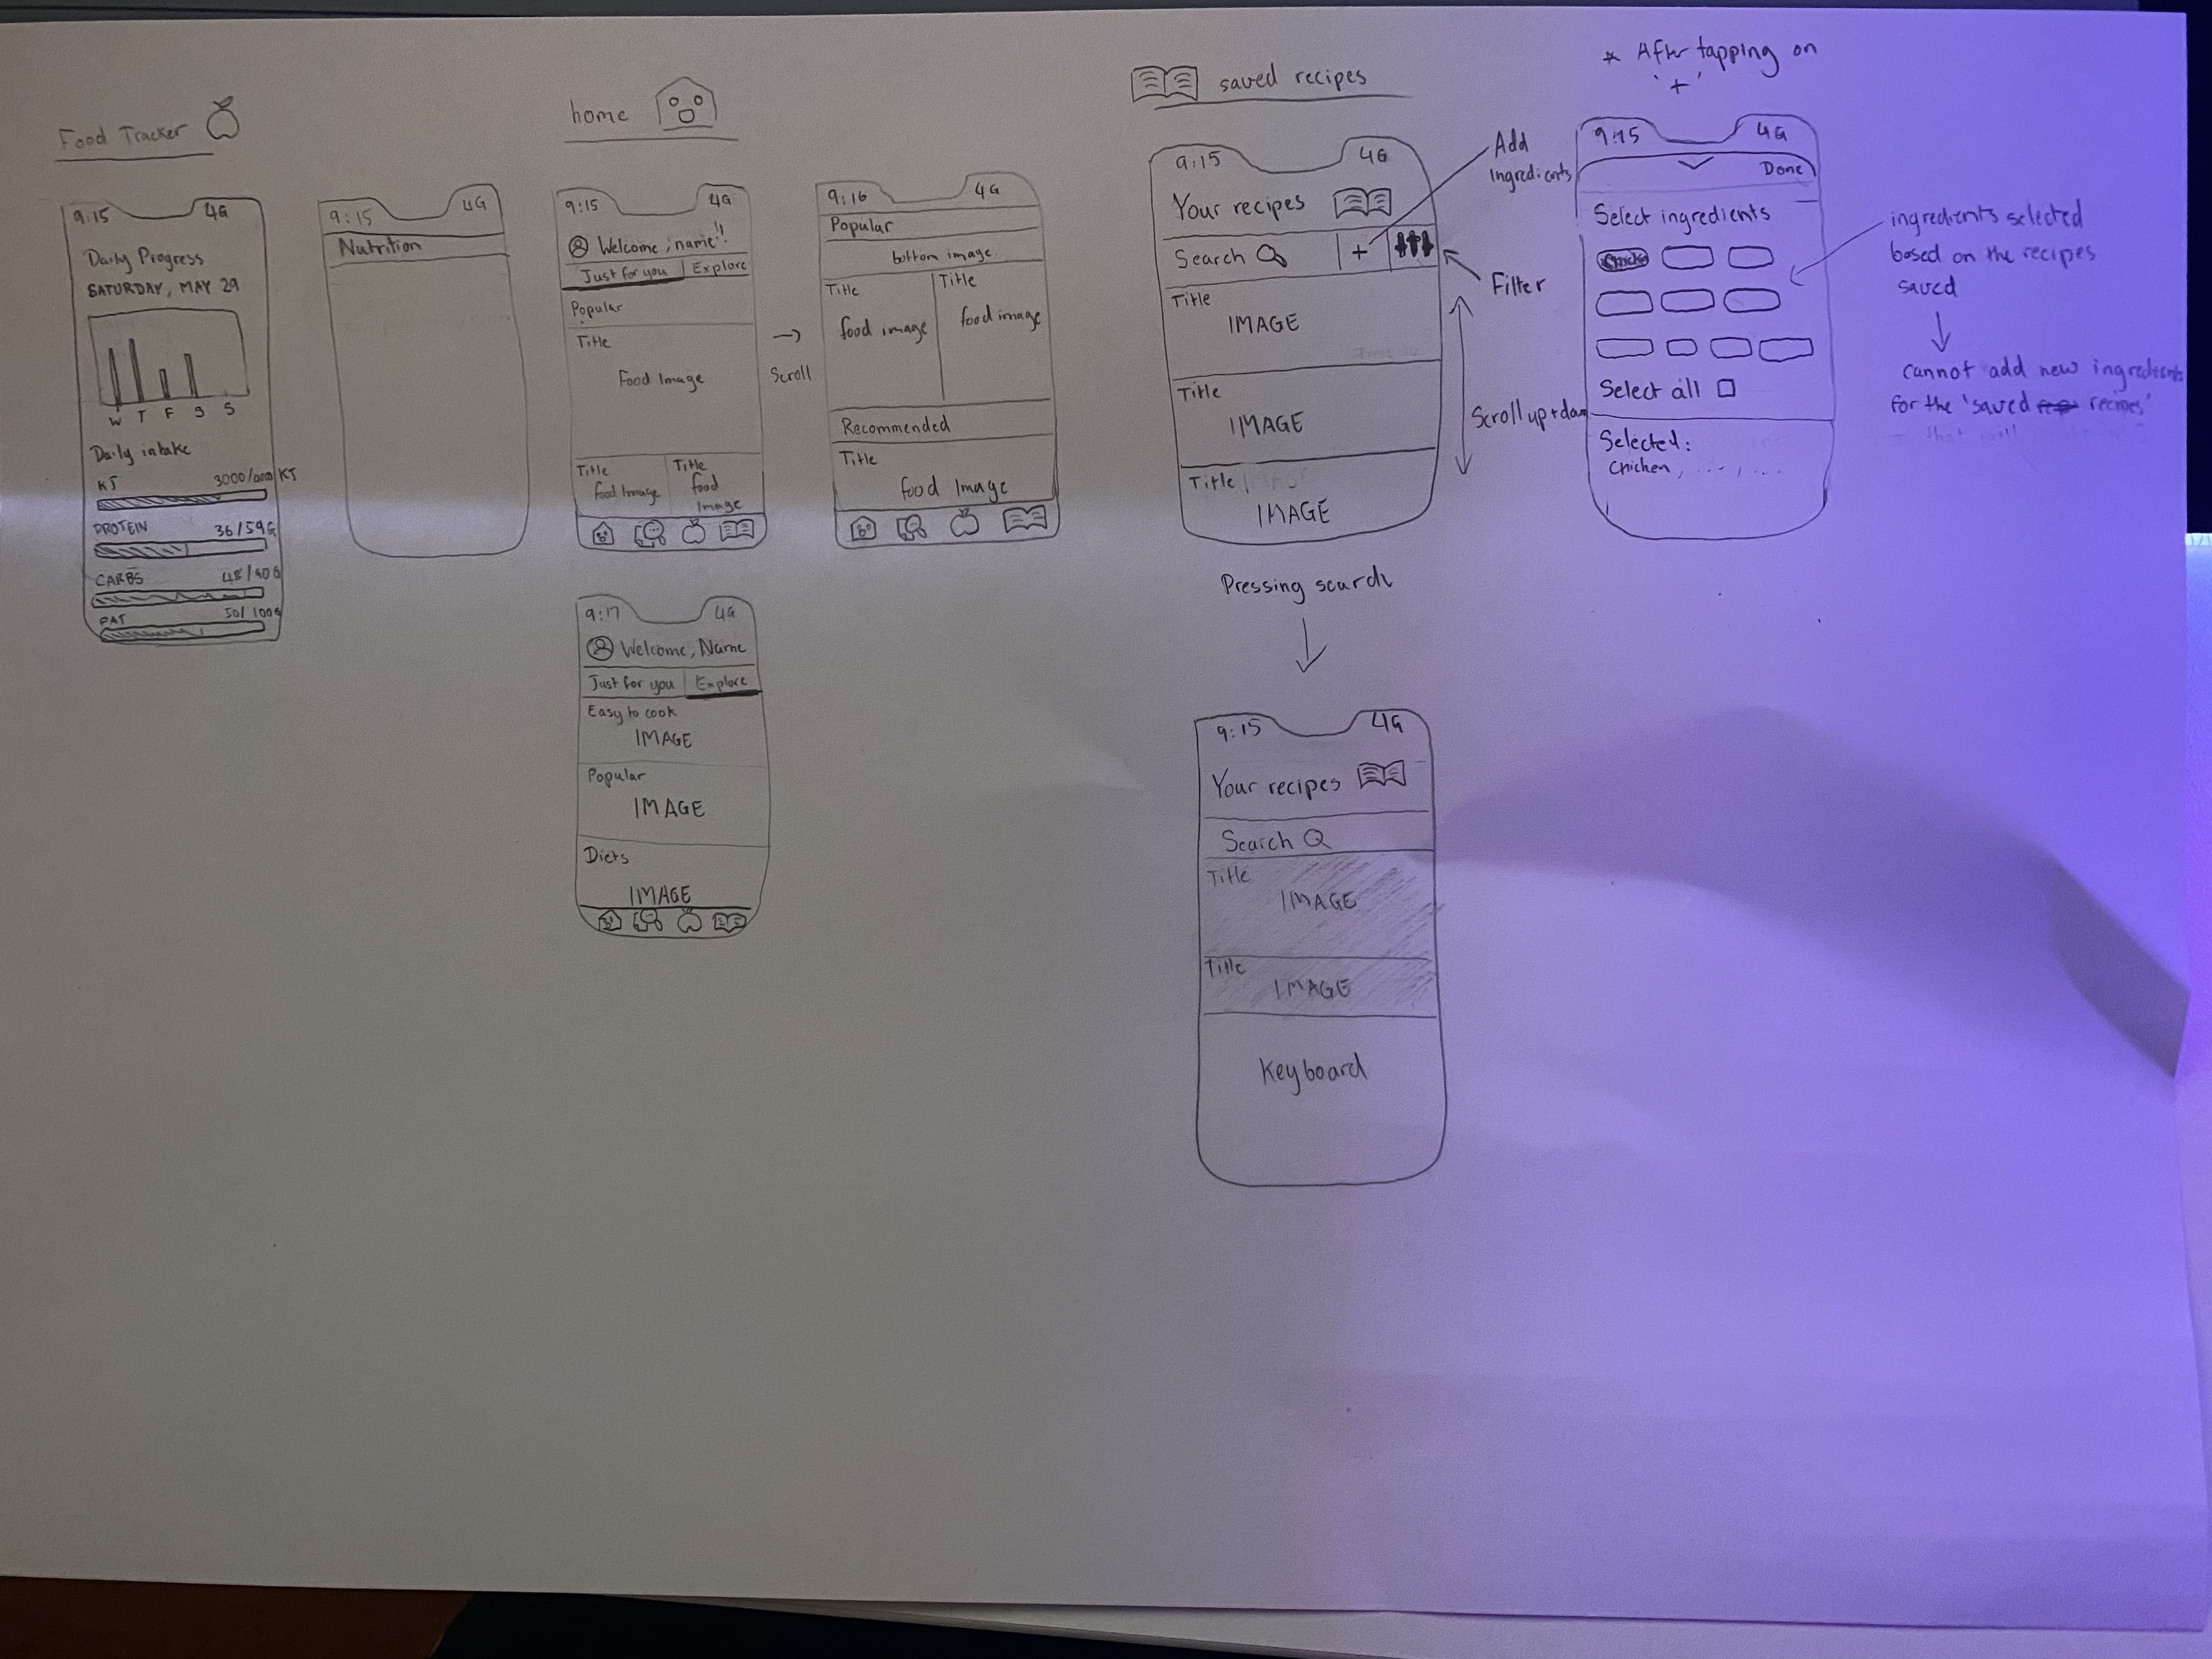 Food Tracker
9:15 4G
Daily Progress
SATURDAY, MAY 29
W T F S S
Daily intake
KJ 3000/ KJ
PROTEIN 36/59G
CARBS 48/90G
FAT 50/100G
9:15 4G
Nutrition
home
9:15 4G
Welcome, name!!
Just for you | Explore
Popular
Title
Food Image
Title Title
food Image food
Image
→
Scroll
9:16 4G
Popular
bottom image
Title Title
food image food image
Recommended
Title
food Image
9:17 4G
Welcome, Name
Just for you | Explore
Easy to cook
IMAGE
Popular
IMAGE
Diets
IMAGE
saved recipes
9:15 4G
Your recipes
Search +
Title
IMAGE
Title
IMAGE
Title
IMAGE
Add
ingredients
Filter
Scroll up + down
Pressing search
9:15 4G
Your recipes
Search
Title
IMAGE
Title
IMAGE
Keyboard
* After tapping on
'+'
9:15 4G
Done
Select ingredients
Select all
Selected:
Chicken, ..., ...
ingredients selected
based on the recipes
saved
cannot add new ingredients
for the 'saved recipes'